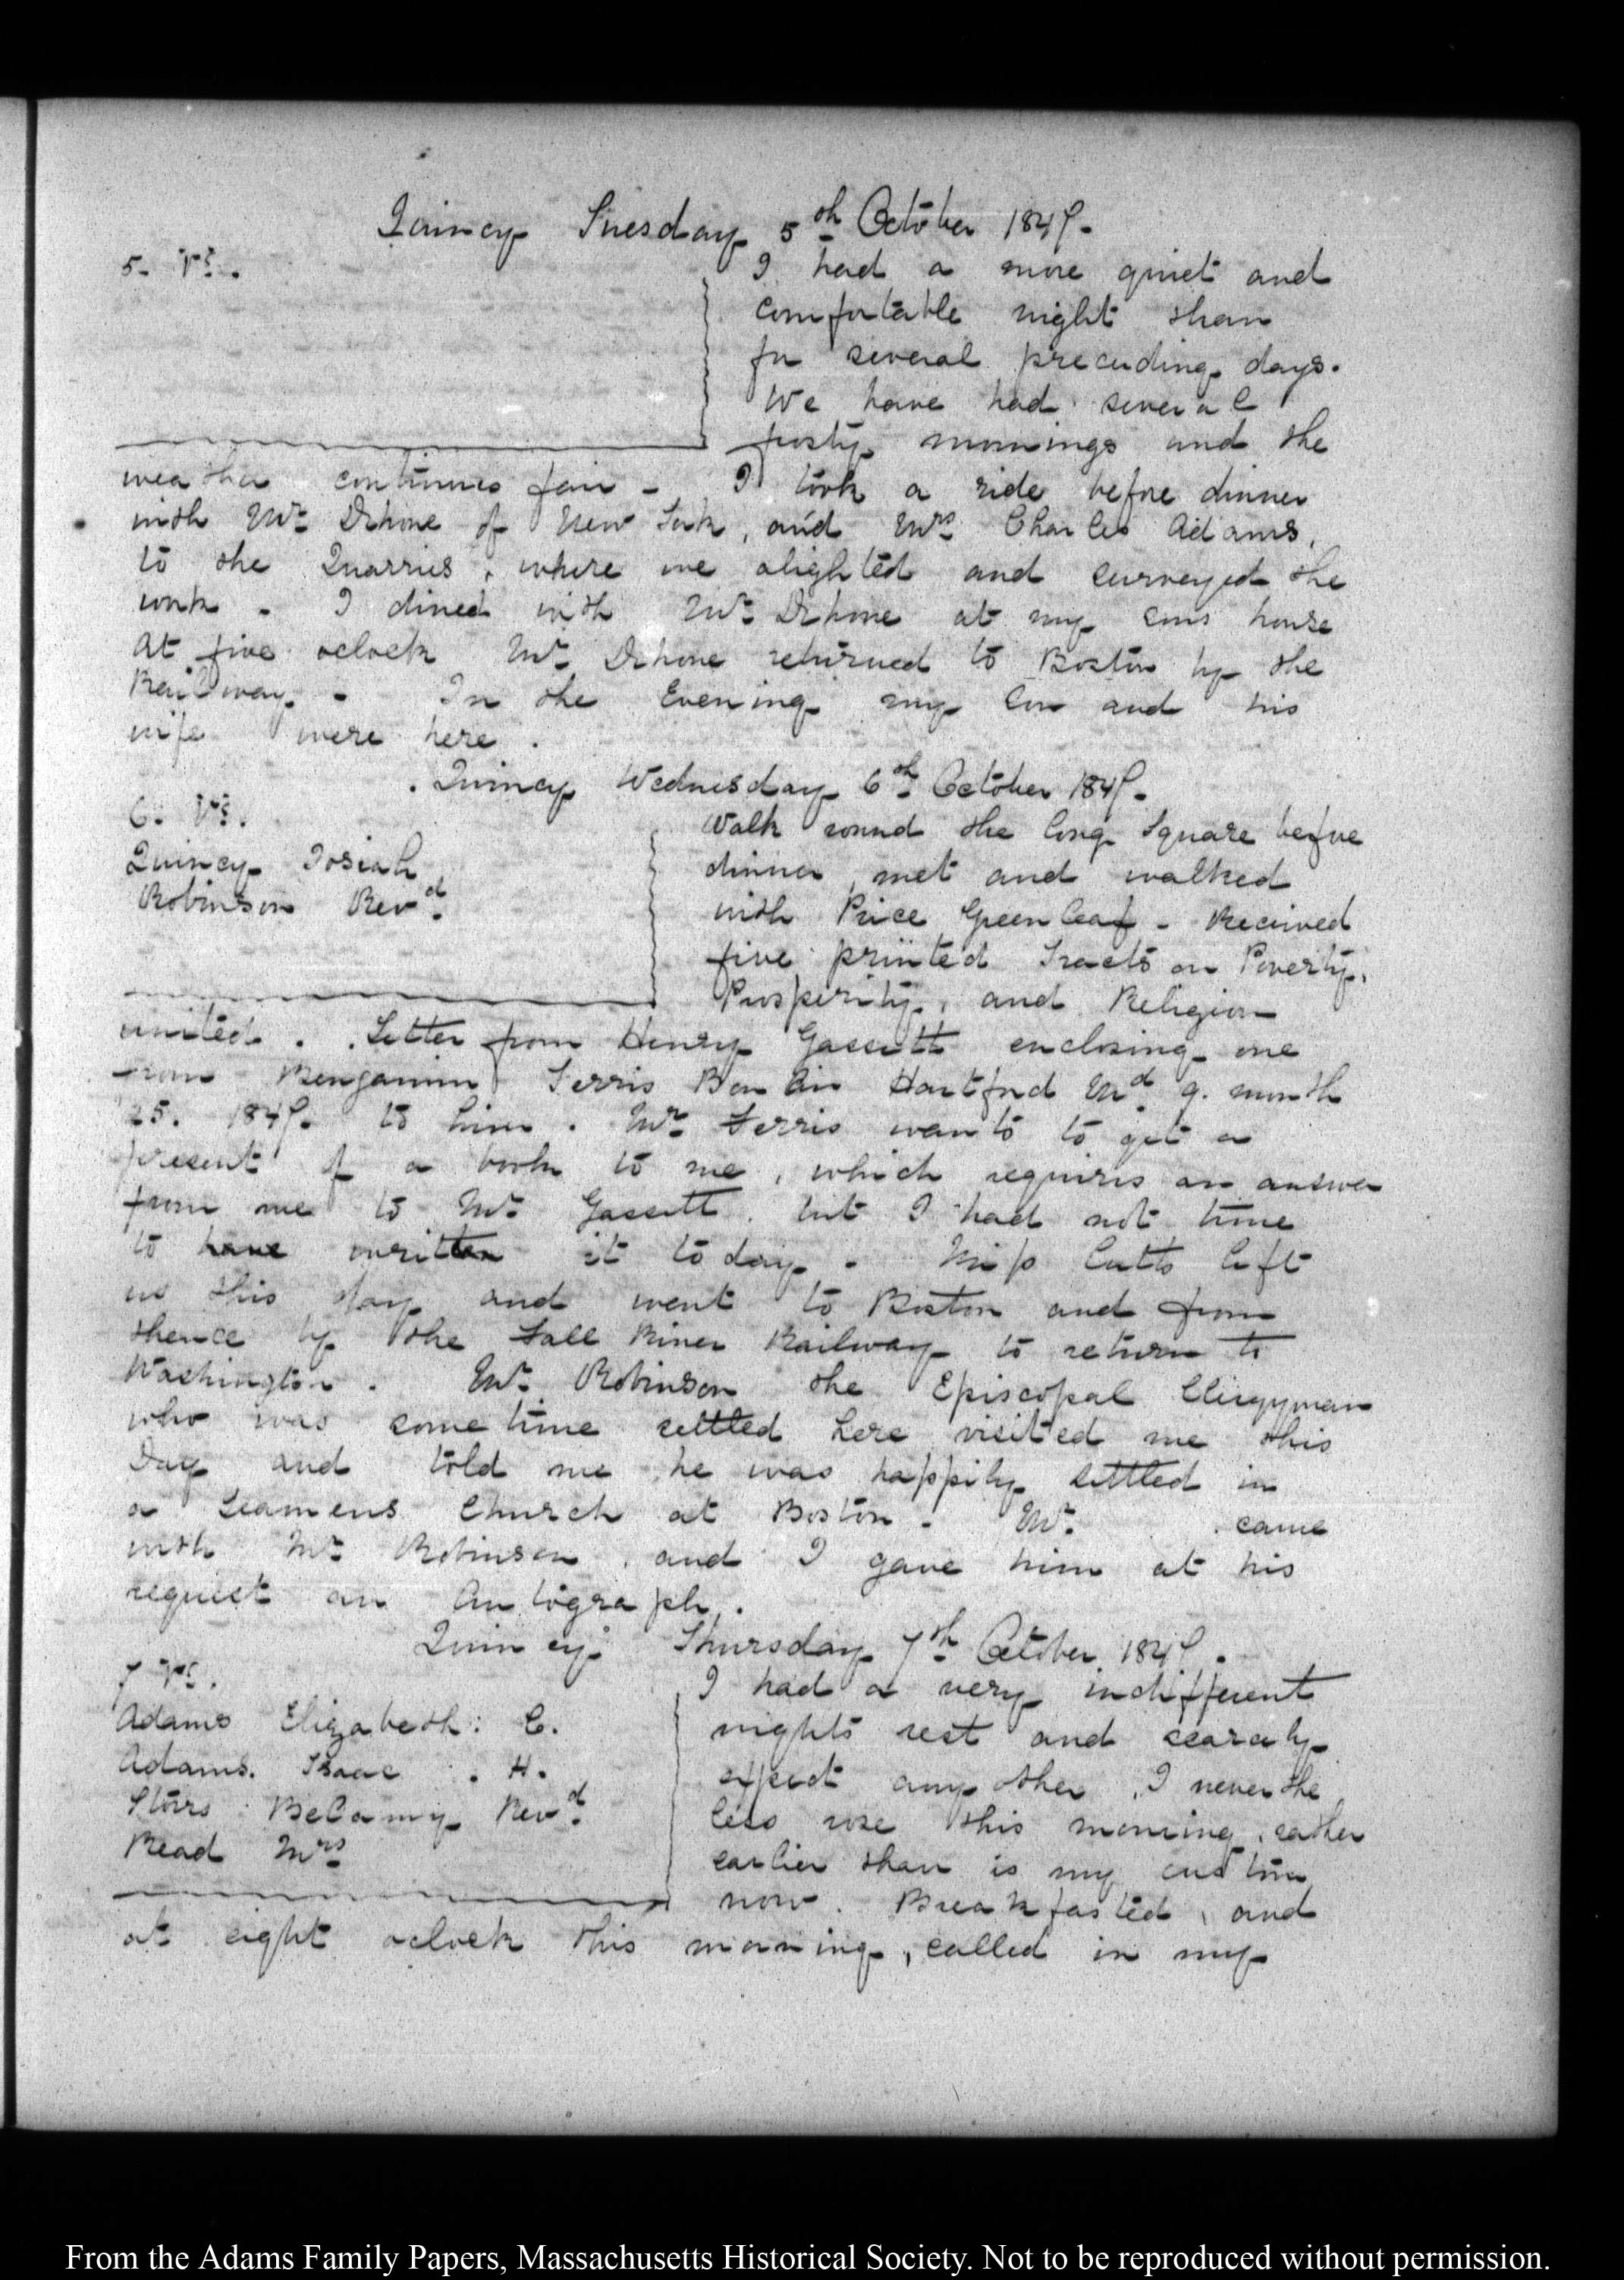 Quincy Tuesday 5th October 1847.
5. VI.
I had a more quiet and
comfortable night than
for several preceding days.
We have had several
frosty mornings and the
weather continues fair - I took a ride before dinner
with Mr of New York, and Mrs Charles Adams,
to the Quarries, where we alighted and surveyed the
work - I dined with Mr at my sons house
At five oclock Mr returned to Boston by the
Railway - In the Evening my Son and his
wife were here.
Quincy Wednesday 6th October 1847.
6. VI.
Quincy Josiah
Robinson Revd.
Walk round the long Square before
dinner, met and walked
with Price Greenleaf - Received
five printed Tracts on Poverty,
Prosperity, and Religion
united. Letter from Henry Gassett enclosing one
from Benjamin Ferris Hartford Md. 9. month
25. 1847. to him. Mr Ferris wants to get a
present of a book to me, which requires an answer
from me to Mr Gassett, but I had not time
to have written it to day. Miss Cutts left
us this day and went to Boston and from
thence by the Fall River Railway to return to
Washington. Mr Robinson the Episcopal Clergyman
who was some time settled here visited me this
Day and told me he was happily settled in
a Seamens Church at Boston - Mr. came
with Mr Robinson, and I gave him at his
request an Autograph.
Quincy Thursday 7th October 1847.
7 VI.
Adams Elizabeth: C.
Adams. Isaac. H.
Storrs Bellamy Revd.
Read Mrs
I had a very indifferent
nights rest and scarcely
expect any other, I never the
less rose this morning, rather
earlier than is my custom
now. Breakfasted, and
at eight oclock this morning, called in my
From the Adams Family Papers, Massachusetts Historical Society. Not to be reproduced without permission.